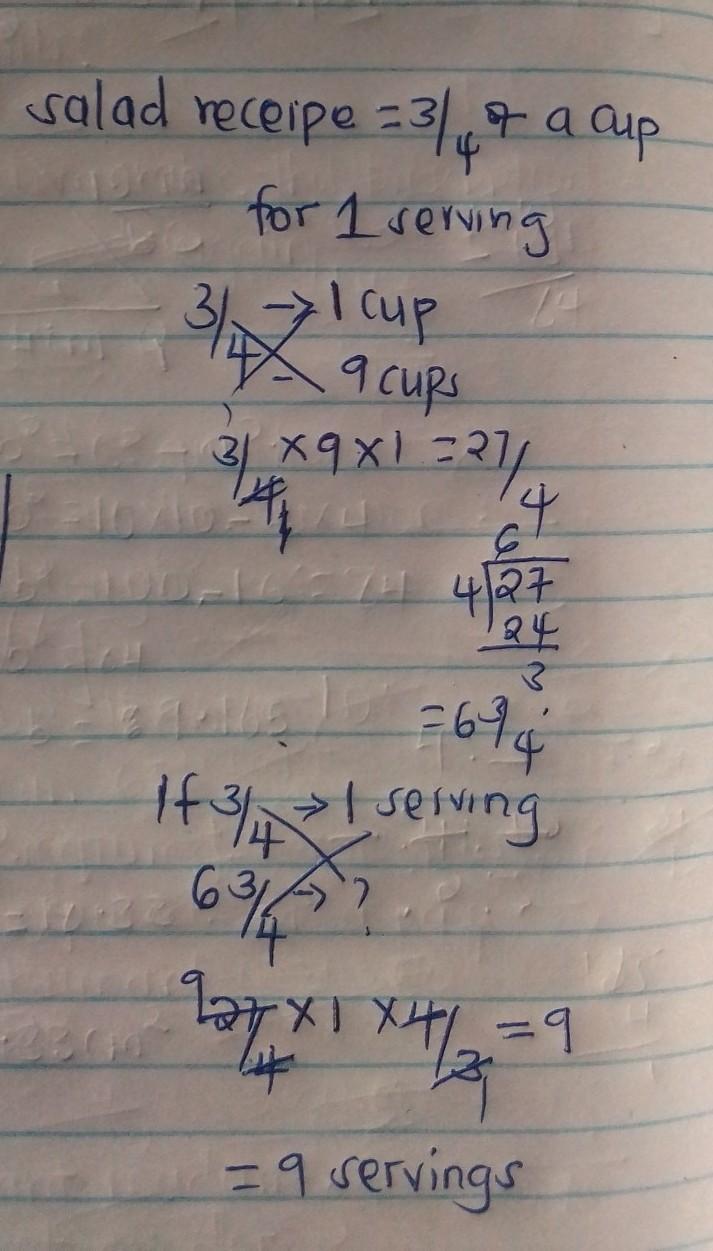 salad receipe = 3/4 of a cup
for 1 serving
3/4 → 1 cup
- 9 cups
3/4 × 9 × 1 = 27/4
6
4 27
24
3
= 6 3/4
If 3/4 → 1 serving
6 3/4 → ?
9 27/4 × 1 × 4/3 = 9
1
= 9 servings